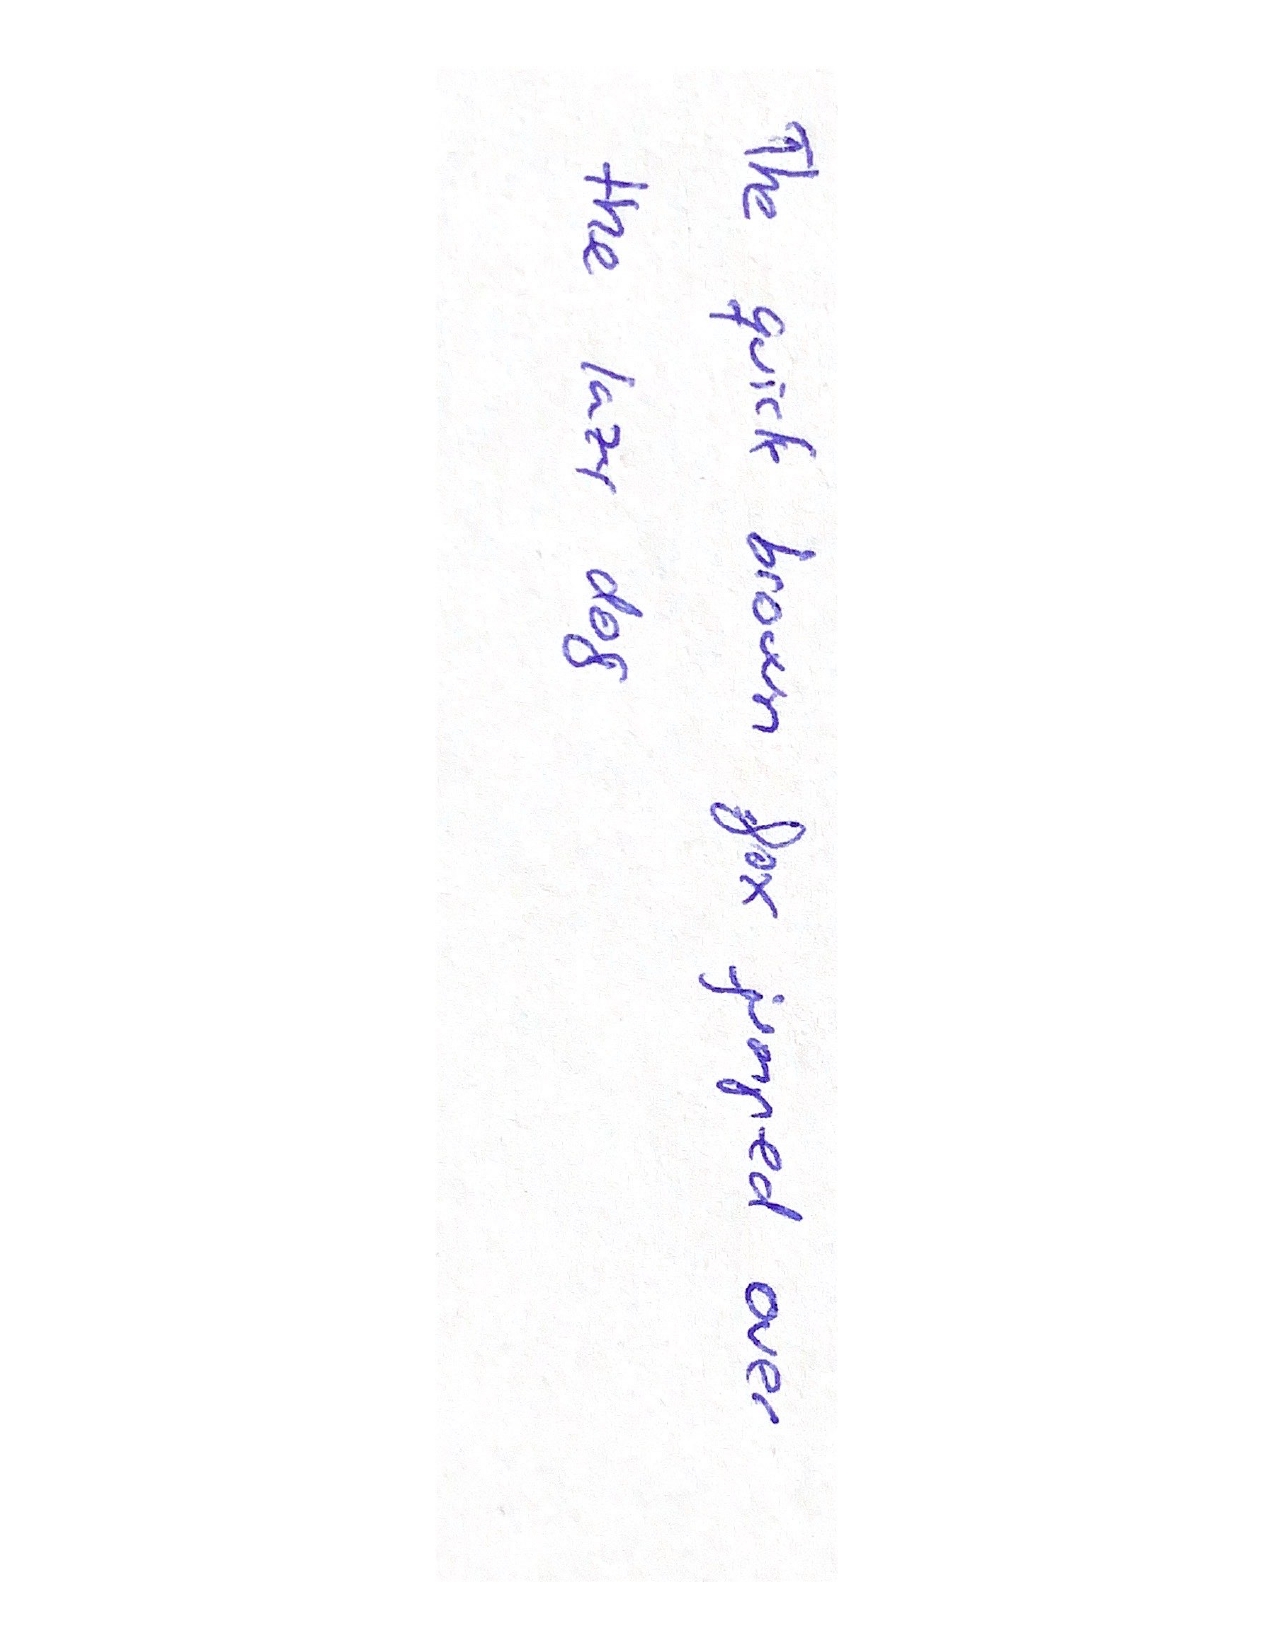 The quick brown fox jumped over
the lazy dog